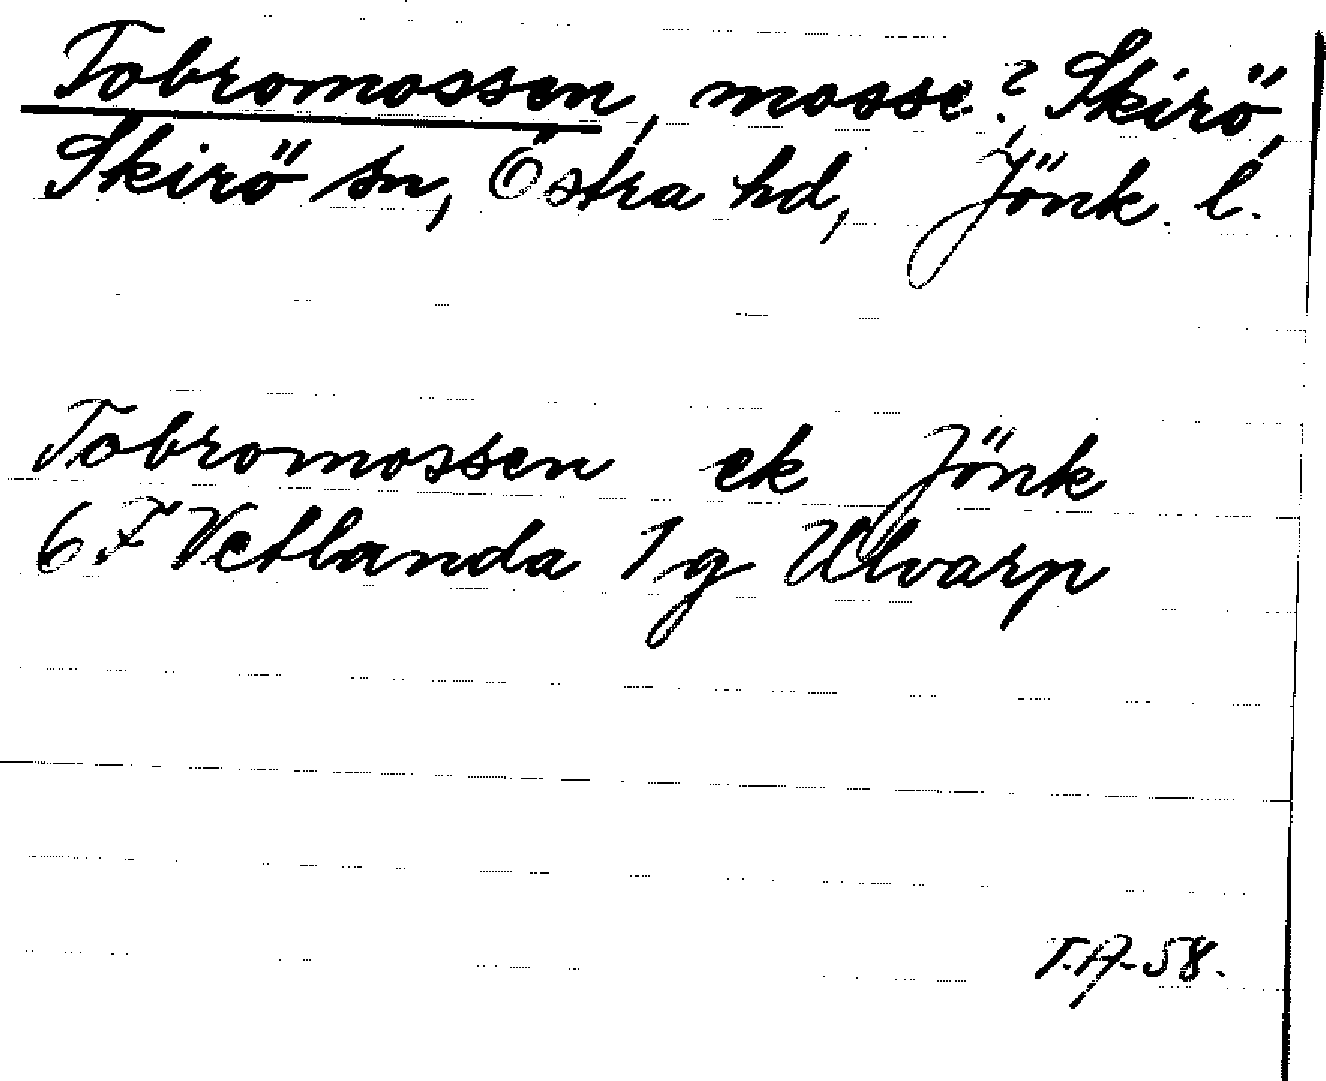 Tobromossen, mosse? Skirö,
Skirö sn, Östra hd, Jönk. l.
Tobromossen ek Jönk
6 F Vetlanda 1 g Ulvarp
T.A-58.